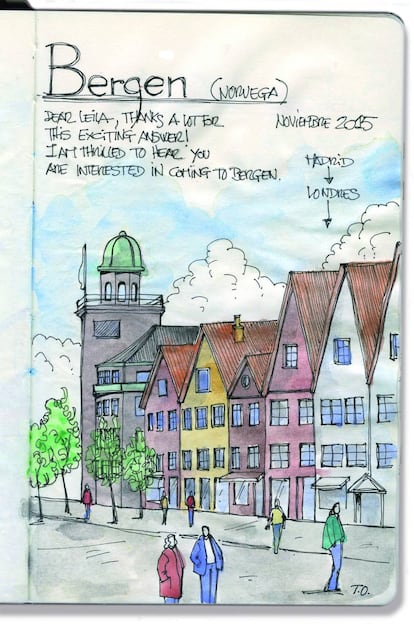 Bergen (NORUEGA)
DEAR LEILA, THANKS A LOT FOR
THIS EXCITING ANSWER!
I AM THRILLED TO HEAR YOU
ARE INTERESTED IN COMING TO BERGEN.
NOVIEMBRE 2005
MADRID
LONDRES
T.O.